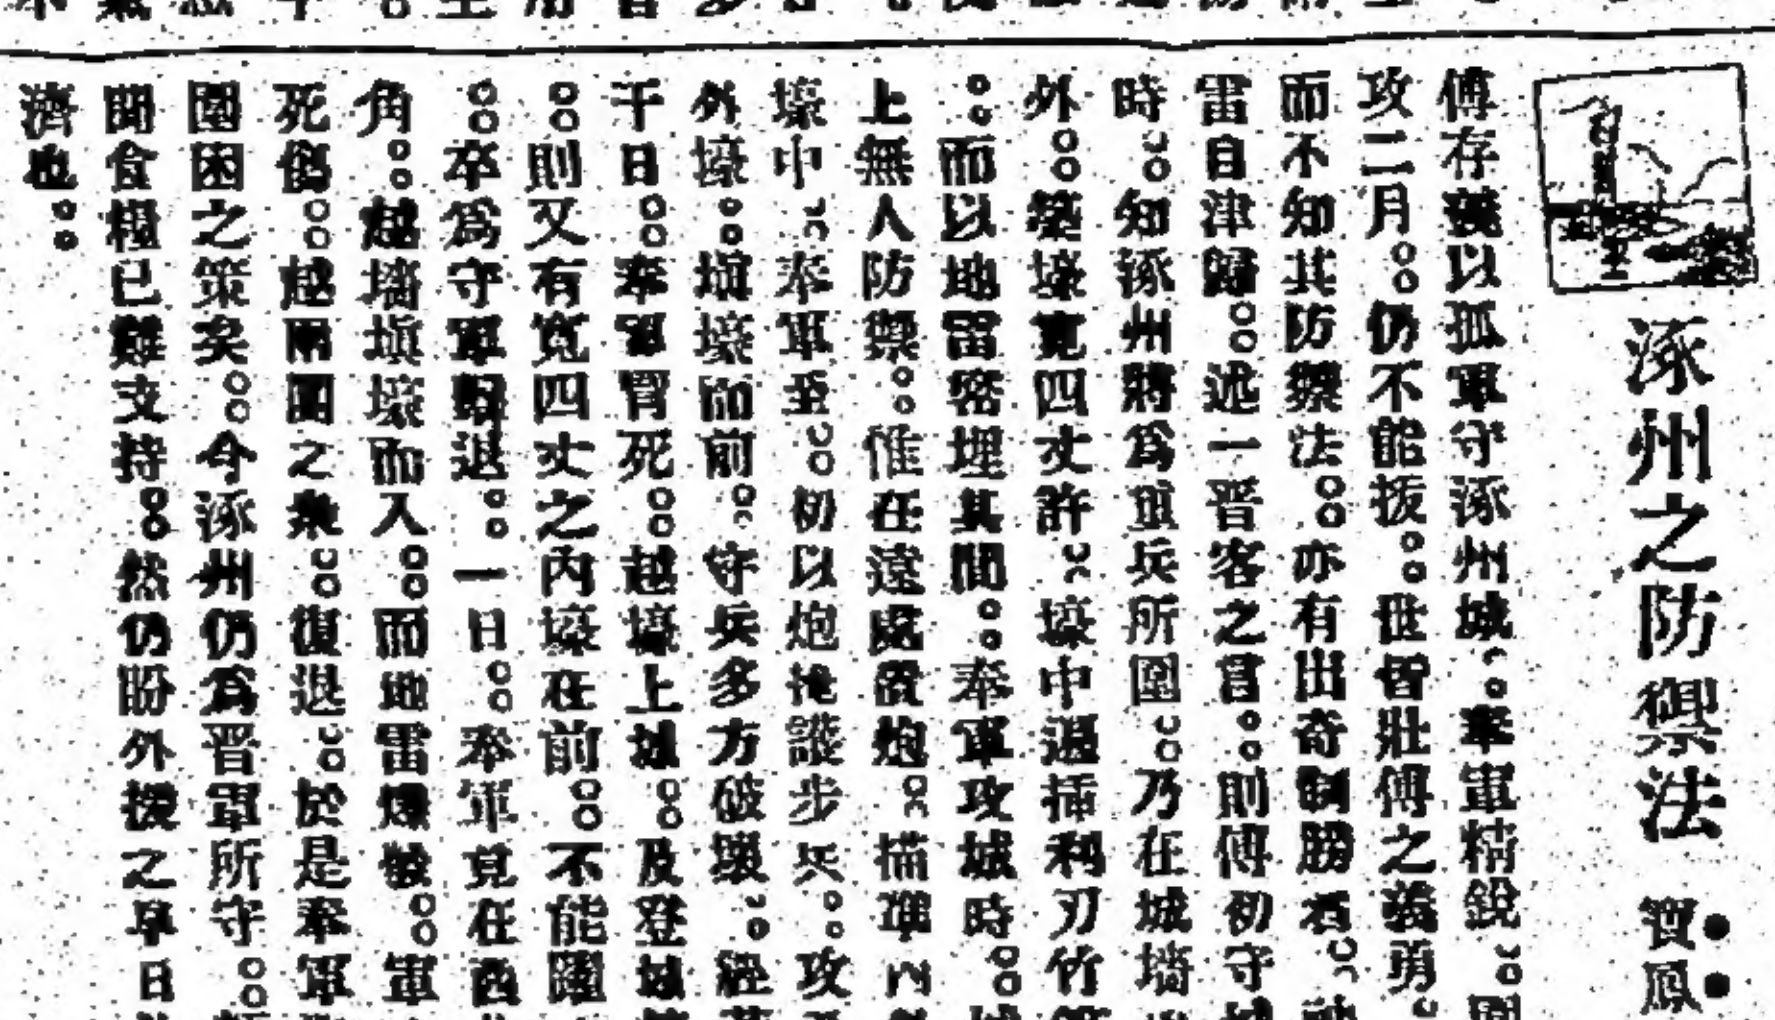 涿州之防禦法
寶鳳
傅存義以孤軍守涿州城。奉軍精銳。圍
攻二月。仍不能拔。世皆壯傅之義勇。
而不知其防禦法。亦有出奇制勝者。
雷自津歸。述一晋客之言。則傅初守城
時。知涿州將為重兵所圍。乃在城墻
外。築壕寬四丈許。壕中遍插利刃竹
。而以地雷密埋其間。奉軍攻城時。城
上無人防禦。惟在遠處放炮。描準內
壕中。奉軍至。初以炮掩護步兵。攻
外壕。塡壕而前。守兵多方破壞。經
干日。奉軍冐死。越壕上城。及登城
。則又有寬四丈之內壕在前。不能躍
。卒為守軍擊退。一日。奉軍竟在西
角。越墻塡壕而入。而地雷爆發。軍
死傷。越兩圍之衆。復退。於是奉軍
圍困之策矣。今涿州仍為晋軍所守。
聞食糧已難支持。然仍盼外援之早日
濟也。